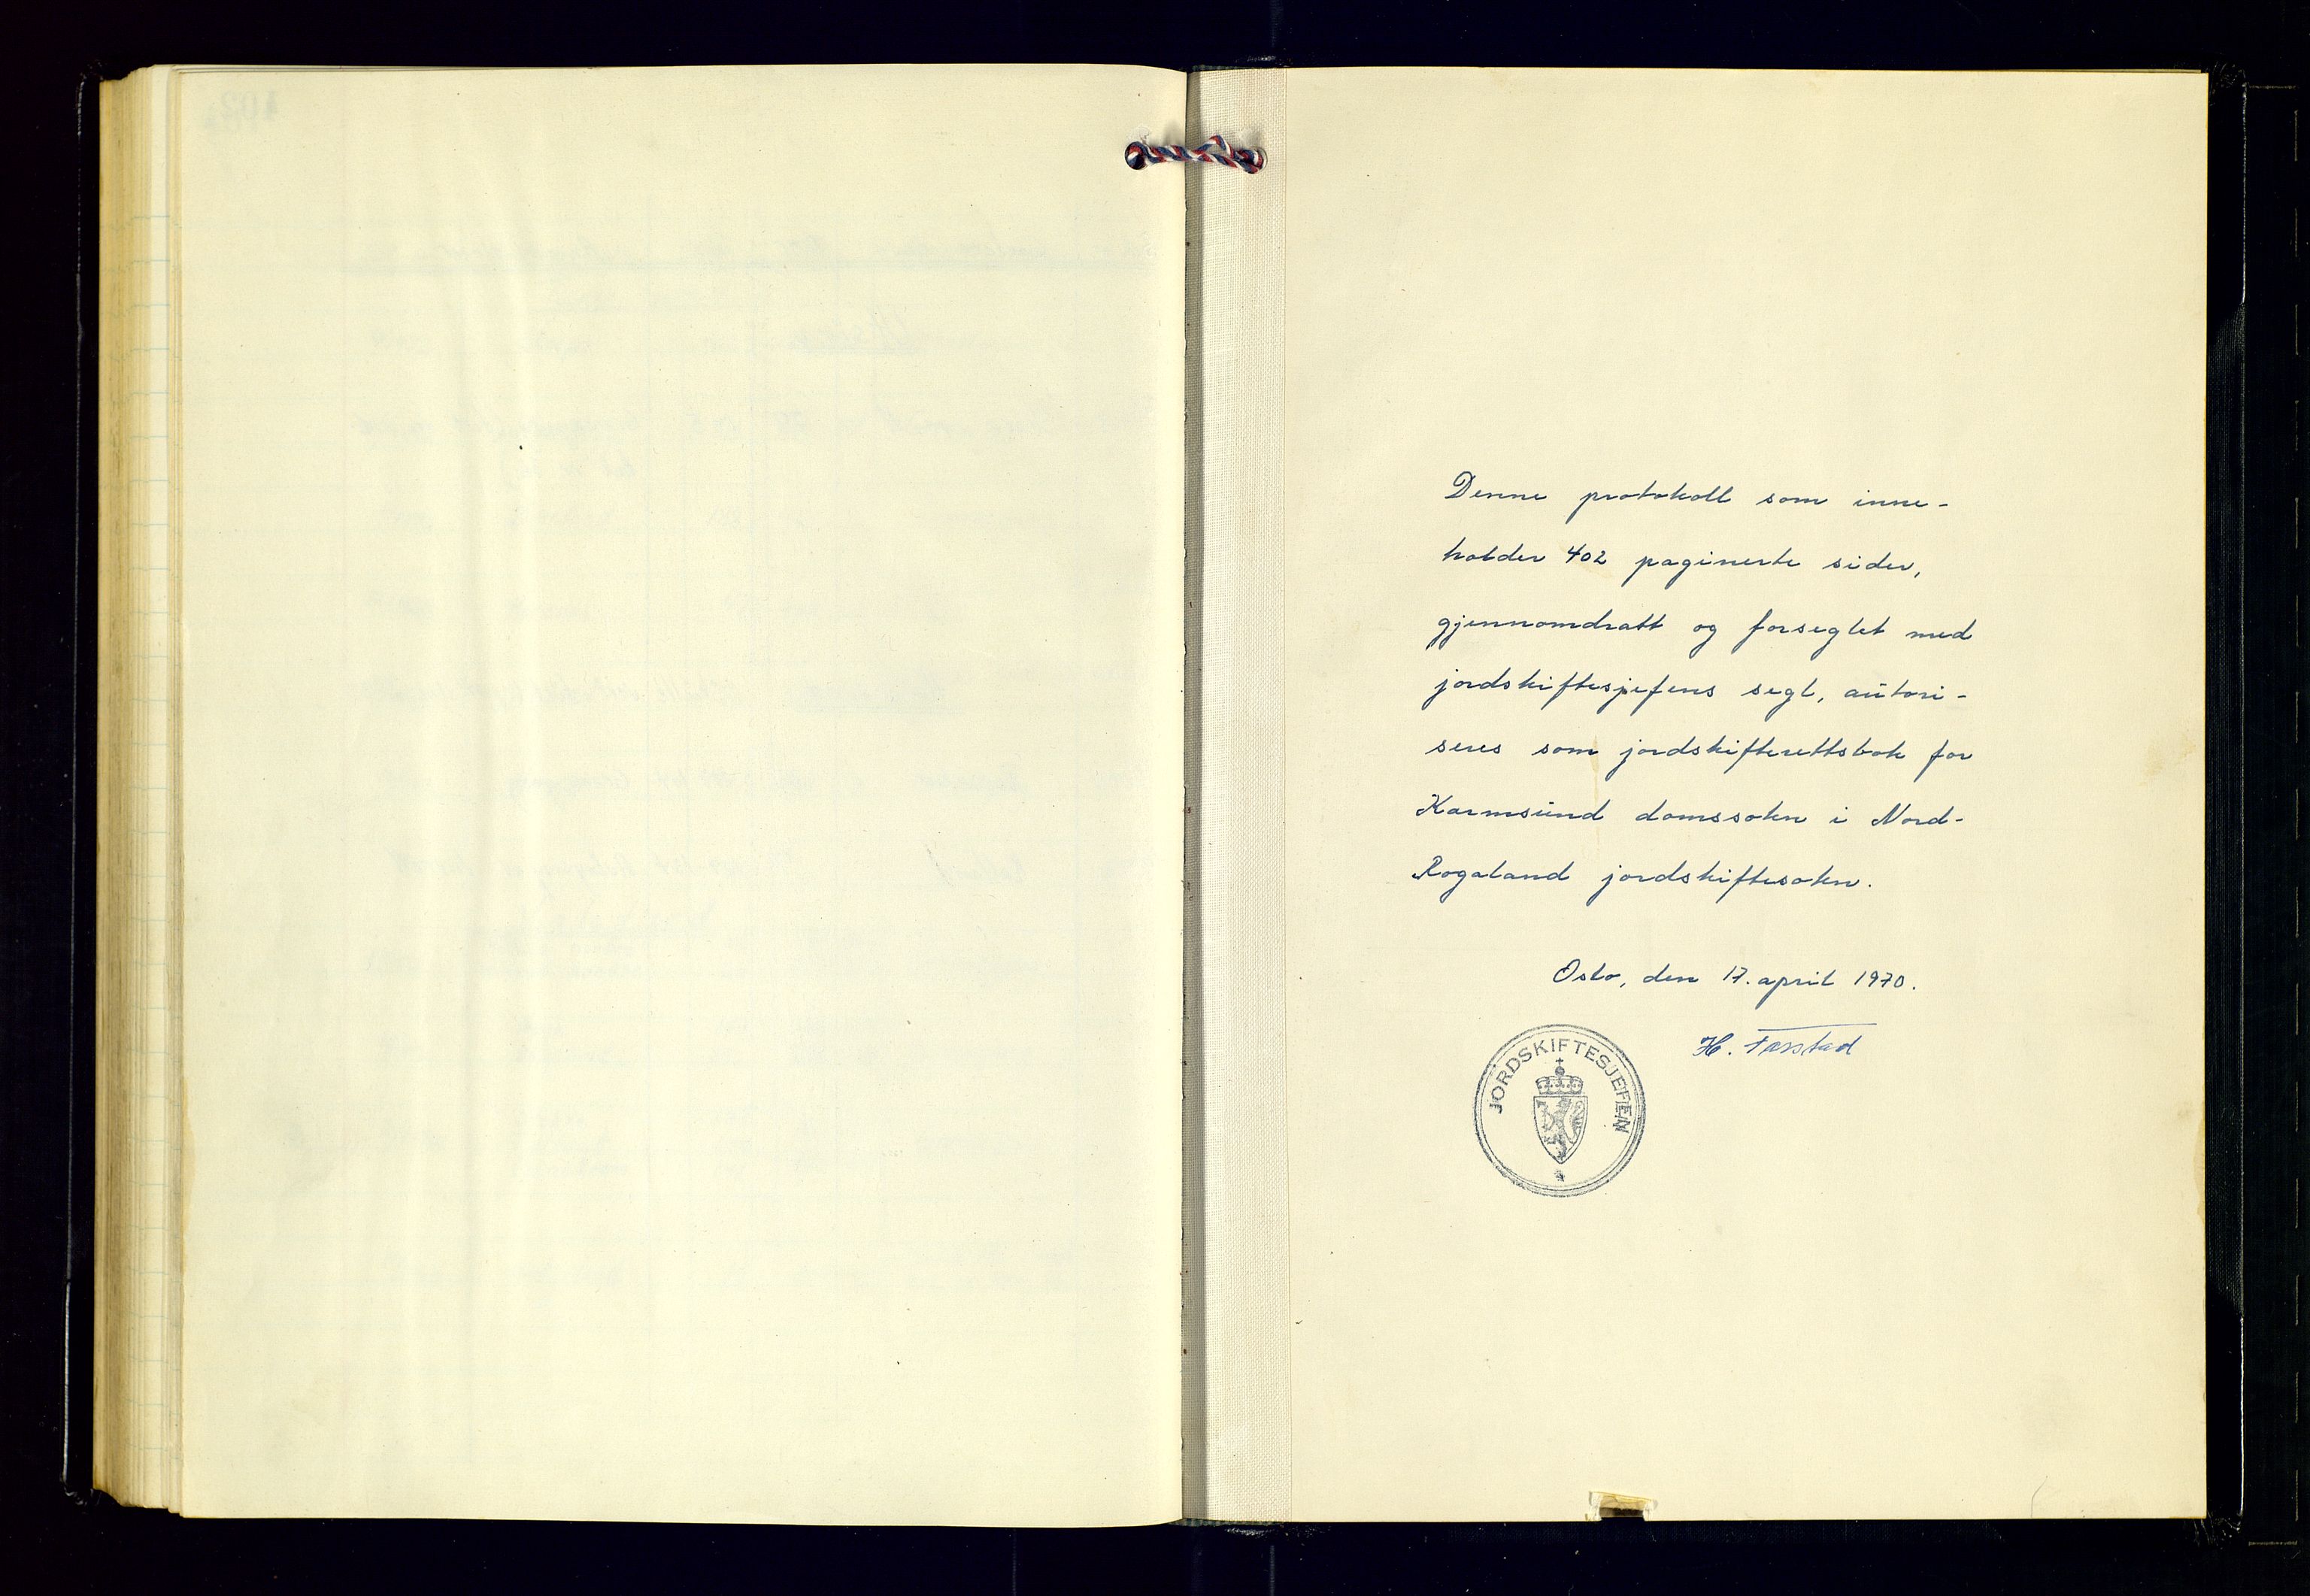 Denne protokoll som inne-
holder 402 paginerte sider,
gjennomdratt og forseglet med
jordskiftesjefens segl, autori-
seres som jordskifterettsbok for
Karmsund domssokn i Nord-
Rogaland jordskiftesokn.
Oslo, den 17. april 1970.
H.
JORDSKIFTESJEFEN